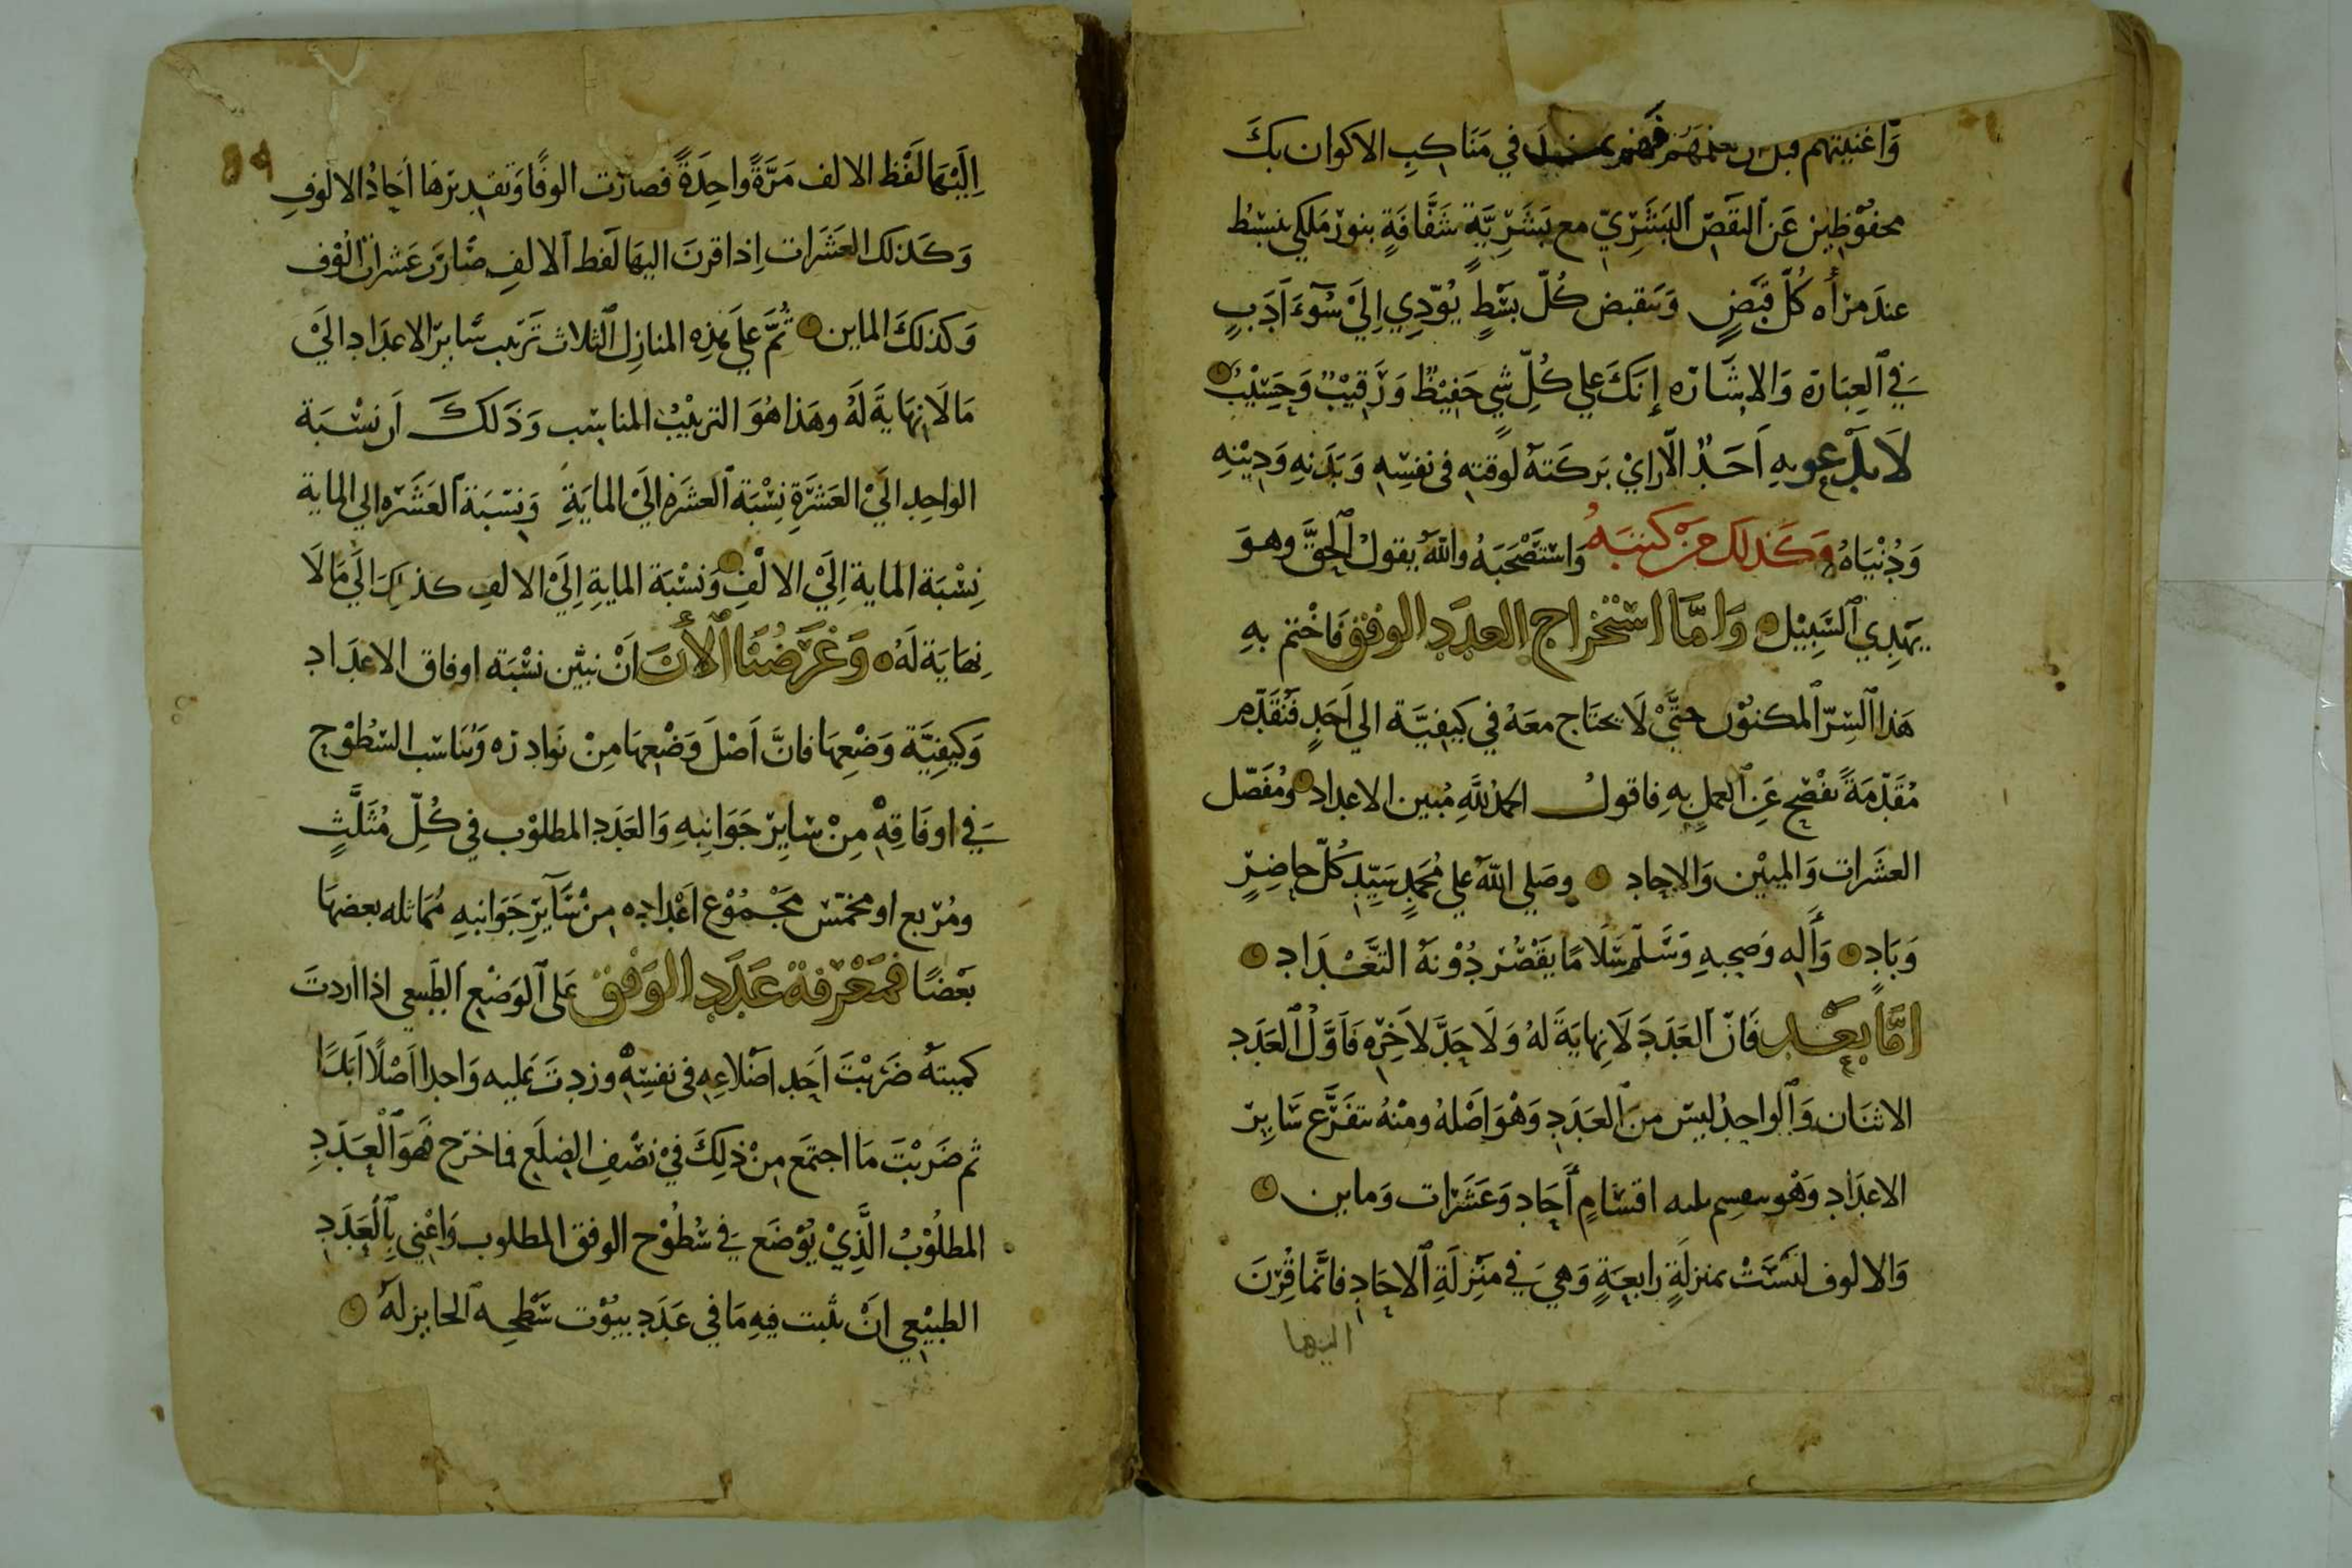 وَاغنيتهم قبل في مَنَاكِبِ الاكوان بكَ
محفوُظِين عَن النَقصّ البَشَرِيّ مع بَشَرِيَّةٍ شَفَّافَةٍ بنور مَلكي ننبسُط
عندَ مرأه كُلّ قَبَضٍ وَننقبض كُلّ بسَطٍ يُودّي اِلَيْ سُوٓءَ اَدَبٍ
في العِبَارَة وَالاشَارَه إِنَكَ علي كُلِّ شي حَفيْظٌ وَرَقيْبٌ وَحَسِيْبٌ
لاَ يدْعو بهِ اَحَدٌ الاّ رايْ بَركَتهُ لوَقتهِ في نفسِهِ وَبَدَنهِ وَدِيْنِهِ
وَدُنْيَاهُ وَكَذلك مَن كتبَهُ وَاستَصْحَبَهُ واللهُ يقولُ الحقَّ وهوَ
يهَدِي السَّبِيْل وَامَّا استخراج العدَد الوفق فَاختم بهِ
هَذا السّرّ المكنوُن حتَّيْ لاَ يحتَاج معَهُ في كيفيَّة الي اَحَدٍ فَنُقَدّم
مُقَدّمَةً تفصح عَن العمل بهِ فاقولُ الحمدُ للهِ مُبين الاعداد ومُفَصّل
العشَرات وَالمئيْن وَالاحاد وصَلي اللهُ علي مُحَمدٍ سَيّدِ كُلّ حاضِرٍ
وَبَادٍ وَأَلهِ وَصحبهِ وَسَلّم سَلَامًا يَقْصُر دُوْنهُ التَّعْدَاد
امَّا بعْد فَانّ العَدَدَ لاَ نِهايَةَ لهُ وَلاَ حَدَّ لاَخِرِه فَاَوَّلُ العَدَد
الاثنَان وَالواحِدُ ليسَ منَ العَدَدِ وَهْوَ اَصْلهُ ومنْهُ يتفَرَّع سَايِر
الاعدَاد وَهْو ينقسم ثلثه اقسَامٍ أَحَاد وَعَشَرات وَماين
وَالالوف ليَسَتْ بمنزلَةٍ رابعَةٍ وَهيَ في منزلَةِ الاحَادِ فانَّما قُرِنَ
اليها
اِلَيَهَا لَفْظ الالف مَرَّةً واحِدَةً فصارَت الوفًا وَتقدِيرهَا اَحَادُ الالوفِ
وَكَذلك العَشَرات اِذا قرنَ اليهَا لَفظ الالفِ صَارَت عَشرات اُلوُف
وَكذلكَ الماين ثُمَّ عَلَى هذِه المنازِل الثلاث تَرَتب سَاير الاعدَاد اليَْ
مَا لَا نهَايةَ لهُ وهَذا هُوَ الترتيْبُ المناسب وَذَلكَ اَن نسْبَة
الواحِد اليْ العَشرَةِ نِسْبَة العشرَة اليَْ المايَةِ وَنسْبَة العَشَرَه الي الماية
نِسْبَة الماية اِليَْ الالْفِ وَنسْبَة المايةِ اِليَْ الالفِ كذلِكَ اِلَي مَا لَا
نِهايَة لَهُ وَغَرَضُنَا الأَنَ اَنْ نبيّن نسْبَة اوفاق الاعدَاد
وَكيفيَّة وَضعِهَا فانَّ اَصْلَ وَضعِهَا مِنْ نَوَادِرَه وَتَنَاسُب السُّطُوْح
في اوفَاقِهْ مِنْ سَايِرْ جَوَانِبهِ وَالعَدَد المطلوْب في كُلِّ مُثَلَّثٍ
ومُربع او مخمّس مَجْمُوْع اعْدَاده مِنْ سَآيرِ جَوَانبهِ مُمَاثله بعضهَا
بَعْضًا فمَعْرفة عَدَد الوَفق عَلى الوَضْع الطَبيعي اذا اردتَ
كميتهُ ضَرَبْتَ اَحَد اضْلاعِهِ في نفسِهْ وزدتَ عليه وَاحدا اصْلًا اَبَدًا
ثم ضَرَبْتَ مَا اجتمَع مِنْ ذلِكَ فيْ نصْف الضلَع فما خرَج فَهوَ العَدَدِ
المطلُوْبُ الَّذِيْ يُوْضَع في سُطُوْح الوفق المطلوب وَاعْني بِالعَدَدِ
الطبيْعي انْ تثبت فيهِ مَا في عَدَد بيُوْت سَطحِه الحايز لهُ